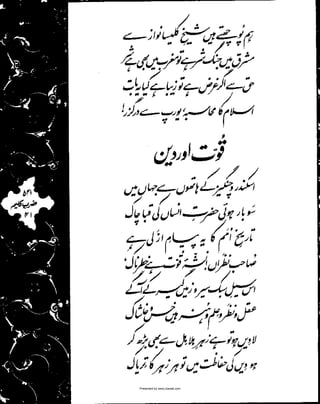 ہم پُوچھتے ہیں شیخِ کلیسا نواز سے
مشرق میں جنگ شر ہے تو مغرب میں بھی ہے شر
حق سے اگر غرض ہے تو زیبا ہے کیا یہ بات
اسلام کا محاسبہ، یورپ سے درگزر!
قوّت اور دین
اسکندر و چنگیز کے ہاتھوں سے جہاں میں
سَو بار ہوئی حضرتِ انساں کی قبا چاک
تاریخِ اُمَم کا یہ پیامِ ازلی ہے
صاحب نظراں! نشّۂ قوّت ہے خطرناک
اس سیلِ سبک سیر و زمیں گیر کے آگے
عقل و نظر و علم و ہنر ہیں خس و خاشاک
لا دیں ہو تو ہے زہرِ ہلاہل سے بھی بڑھ کر
ہو دیں کی حفاظت میں تو ہر زہر کا تریاک
۵۴۱
ضربِ کلیم
۴۱
Presented by www.iqbalal.com